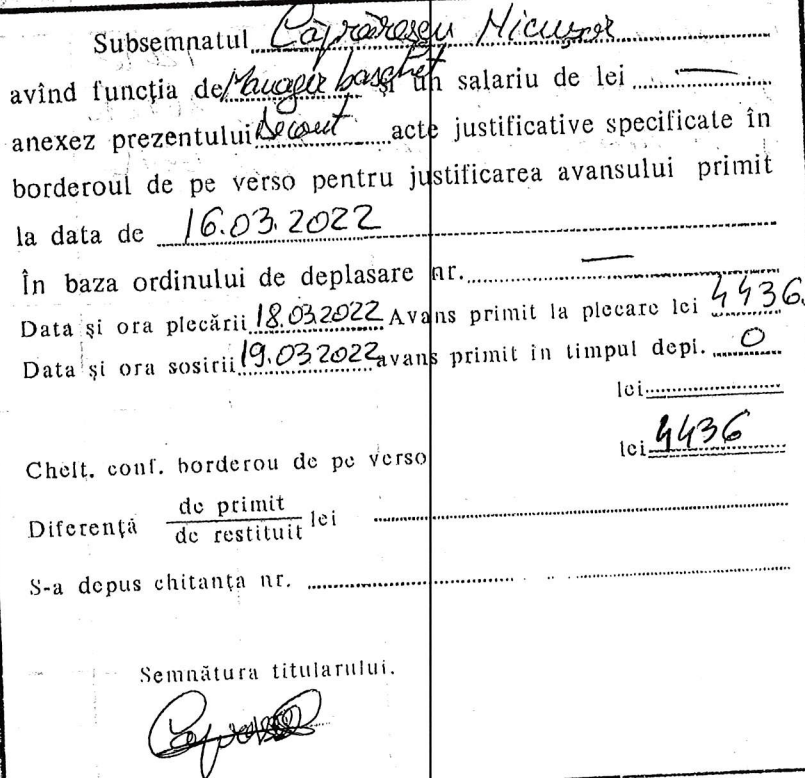 Subsemnatul Căprărescu Nicușor
avînd funcția de Manager baschet și un salariu de lei —
anexez prezentului decont acte justificative specificate în
borderoul de pe verso pentru justificarea avansului primit
la data de 16.03.2022
În baza ordinului de deplasare nr. —
Data și ora plecării 18.03.2022 Avans primit la plecare lei 4436.
Data și ora sosirii 19.03 2022 avans primit în timpul depl. 0
lei
Chelt. conf. borderou de pe verso lei 4436
Diferență de primit / de restituit lei
S-a depus chitanța nr.
Semnătura titularului.